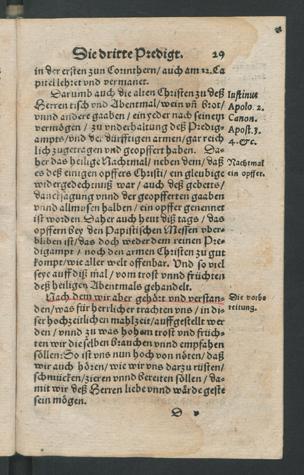 Die dritte Predigt. 29
in der ersten zun Corinthern/ auch am 12. Ca
pitel lehret vnd vermanet.
Darumb auch die alten Christen zu deß
Herren tisch vnd Abentmal/ wein vñ brot/
vnnd andere gaaben/ ein yeder nach seinem
vermögen/ zu vnderhaltung deß Predig-
ampts/ vnd dē dürfftigen armen/ gar reich
lich zugetragen vnd geopffert haben. Da-
her das heilige Nachtmal/ neben dem/ daß
es deß einigen opffers Christi/ ein gleubige
widergedechtnuß war/ auch deß gebets/
dancksagung vnnd der geopfferten gaaben
vnnd allmusen halben/ ein opffer genennet
ist worden. Daher auch heut diß tags/ das
opffern bey den Papistischen Messen vber-
bliben ist/ das doch weder dem reinen Pre-
digampt/ noch den armen Christen zu gut
kompt/ wie aller welt offenbar. Vnd so viel
seye auff diß mal/ vom trost vnnd früchten
deß heiligen Abentmals gehandelt.
Nach dem wir aber gehört vnd verstan-
den/ was für herrlicher trachten vns/ in di-
ser hochzeitlichen mahlzeit/ auffgestellt wer
den/ vnnd zu was hohen trost vnd früch-
ten wir die selben brauchen vnnd empfahen
söllen: So ist vns nun hoch von nöten/ daß
wir auch hören/ wie wir vns darzu rüsten/
schmücken/ zieren vnnd bereiten söllen/ da-
mit wir deß Herren liebe vnnd wärde geste
sein mögen.
D v
Iustinus
Apolo. 2.
Canon.
Apost. 3.
4. &c.
Nachtmal
ein opffer.
Die vorbe
reitung.